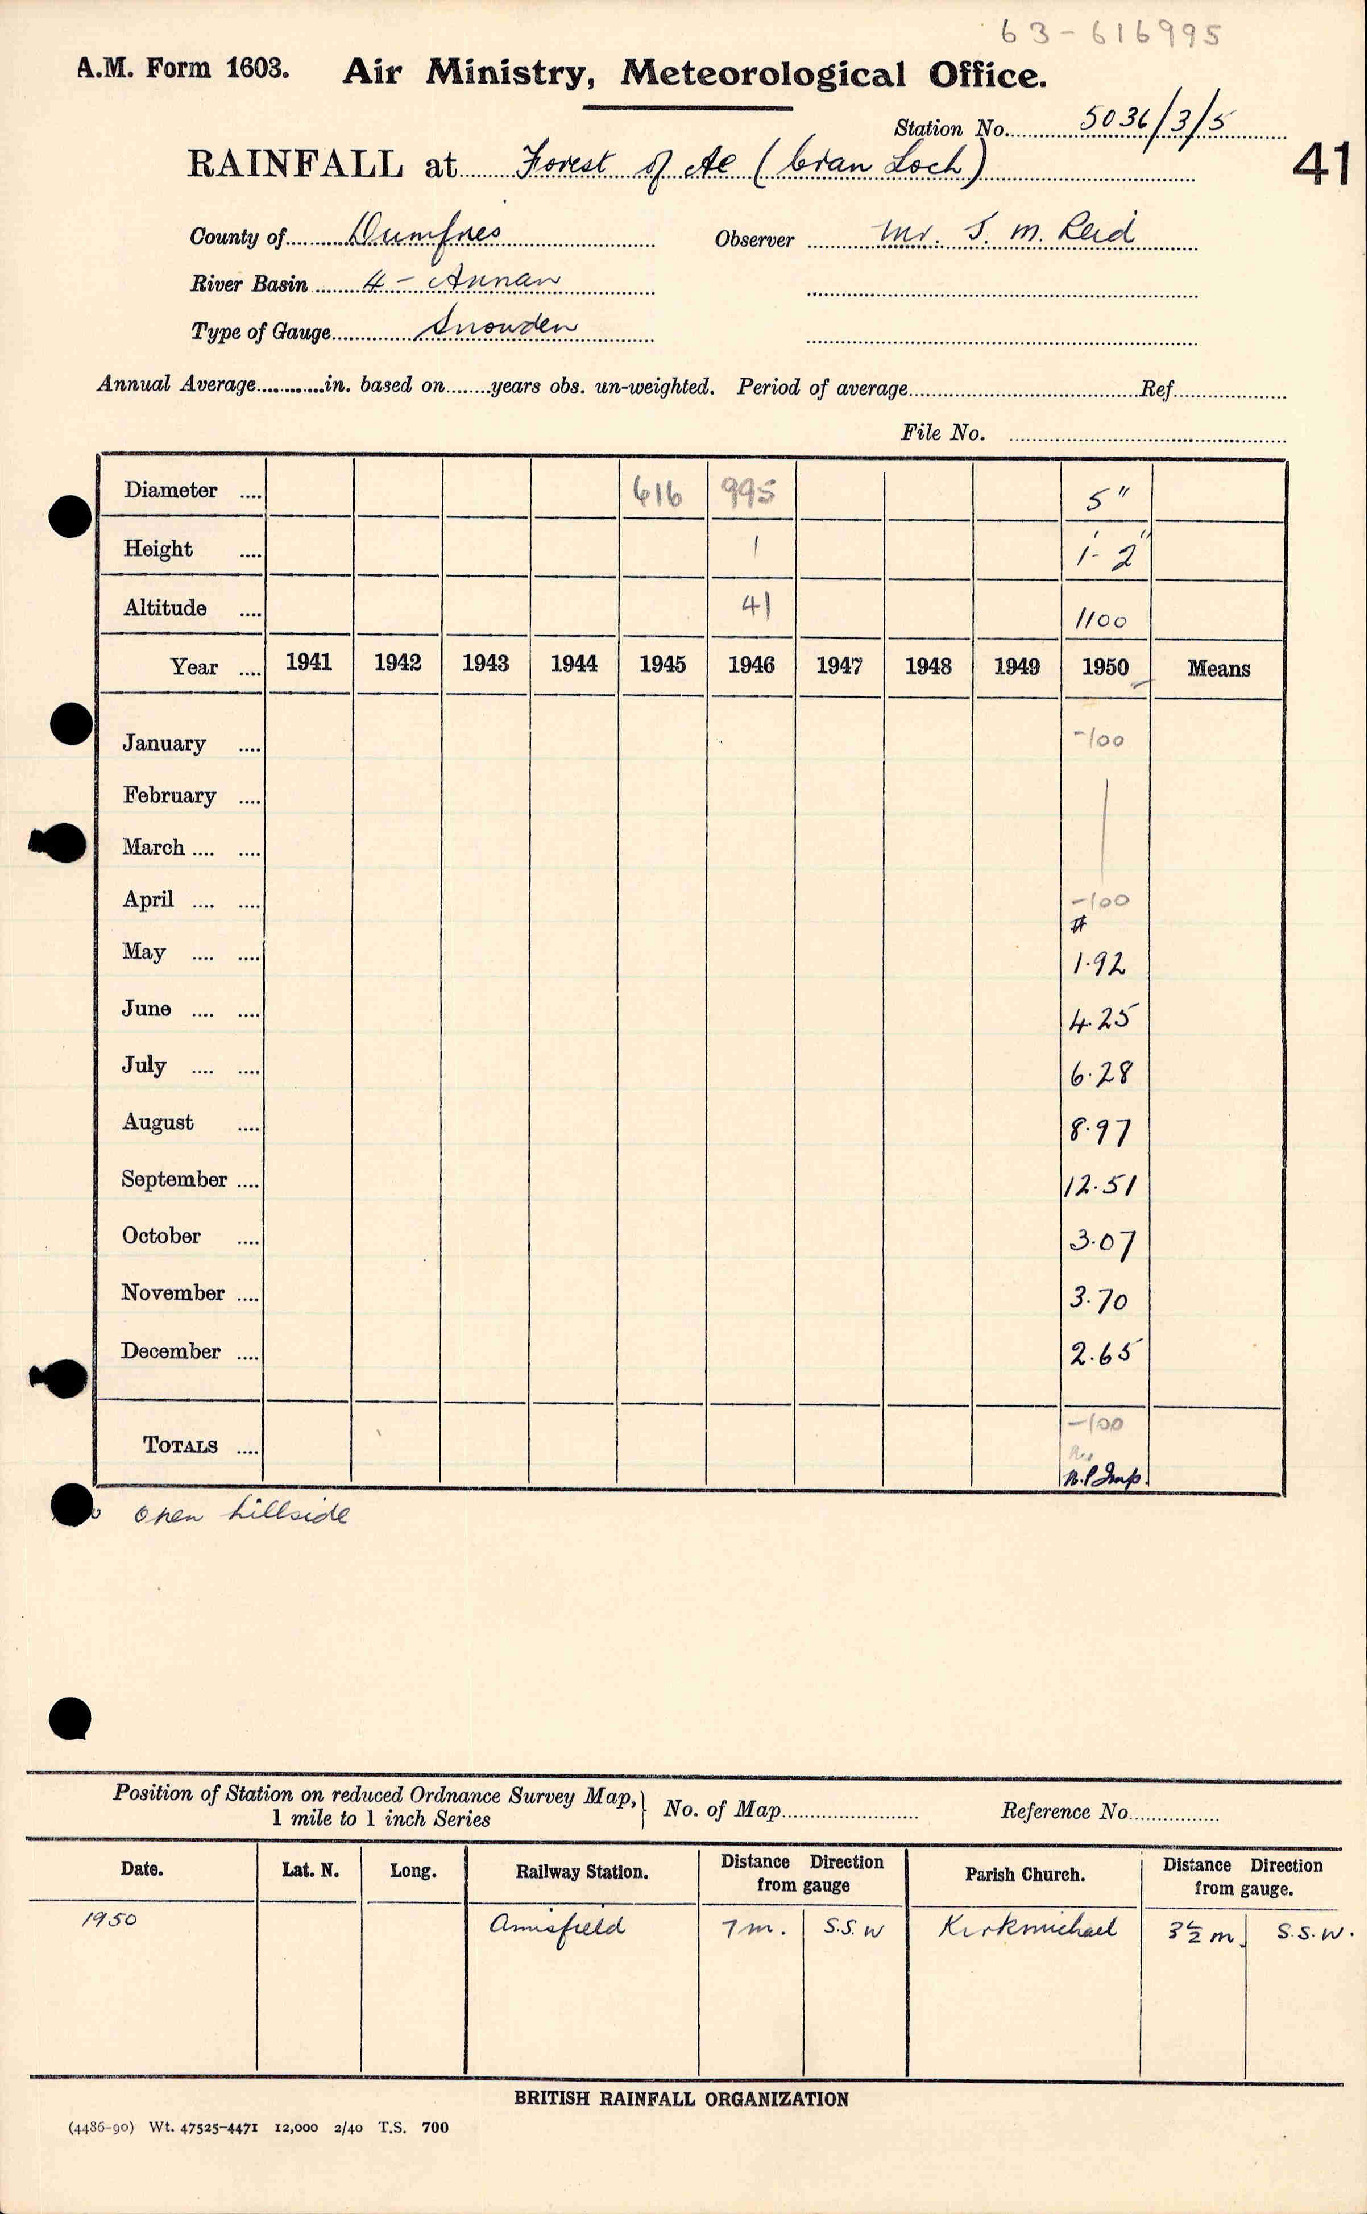 63-616995
A.M. Form 1603. Air Ministry, Meteorological Office.
Station No. 5036/3/5
41
RAINFALL at Forest of Ae (Cran Loch)
County of Dumfries Observer Mr. J. M. Reid
River Basin 4 - Annan
Type of Gauge Snowden
Annual Average in. based on years obs. un-weighted. Period of average Ref.
File No.
Diameter 616 995 5"
Height 1 1'- 2"
Altitude 41 1100
Year 1941 1942 1943 1944 1945 1946 1947 1948 1949 1950 Means
January -100
February
March
April -100
#
May 1.92
June 4.25
July 6.28
August 8.97
September 12.51
October 3.07
November 3.70
December 2.65
-100
TOTALS
open hillside
Position of Station on reduced Ordnance Survey Map, 1 mile to 1 inch Series } No. of Map Reference No.
Date. Lat. N. Long. Railway Station. Distance Direction from gauge Parish Church. Distance Direction from gauge.
1950 Amisfield 7 m. S.S.W Kirkmichael 3½ m. S.S.W.
BRITISH RAINFALL ORGANIZATION
(4486-90) Wt. 47525-4471 12,000 2/40 T.S. 700